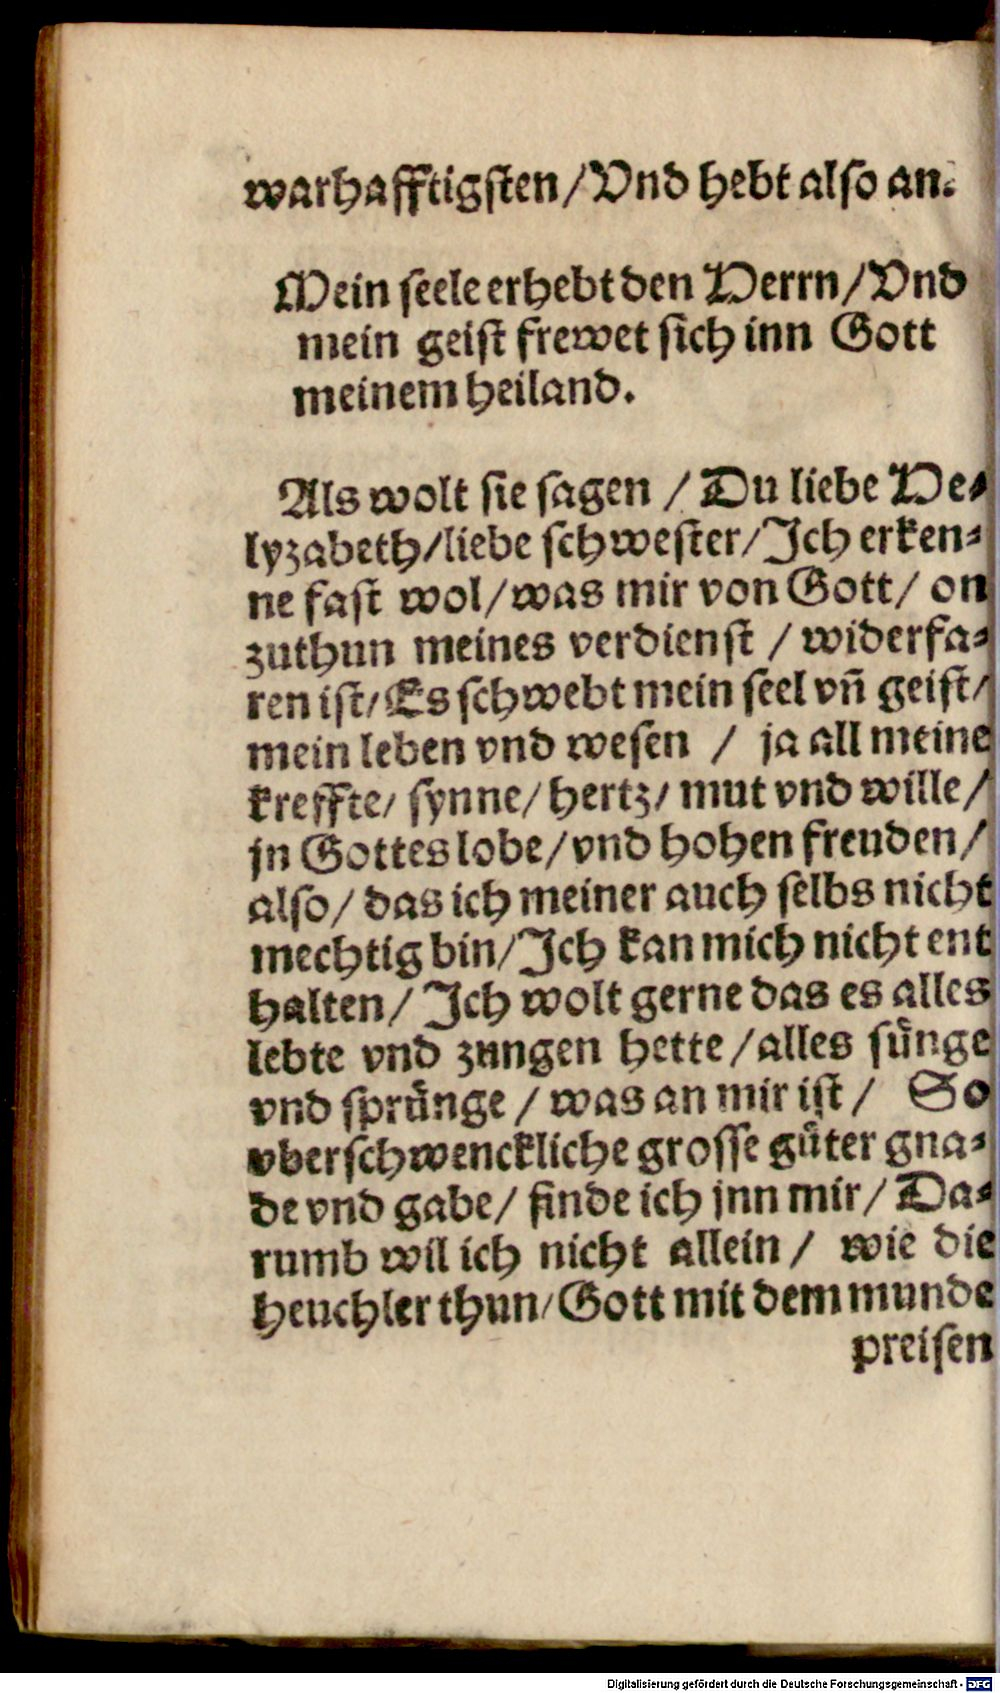 warhafftigsten/Vnd hebt also an.
Mein seele erhebt den Herrn/Vnd
mein geist frewet sich inn Gott
meinem heiland.
Als wolt sie sagen / Du liebe He⸗
lyzabeth/liebe schwester/Ich erken⸗
ne fast wol/was mir von Gott/ on
zuthun meines verdienst / widerfa⸗
ren ist/Es schwebt mein seel vñ geist/
mein leben vnd wesen / ja all meine
kreffte/ synne/ hertz/ mut vnd wille/
jn Gottes lobe/vnd hohen freuden/
also/ das ich meiner auch selbs nicht
mechtig bin/Ich kan mich nicht ent
halten/ Ich wolt gerne das es alles
lebte vnd zungen hette/alles sünge
vnd sprünge / was an mir ist/ So
vberschwenckliche grosse güter gna⸗
de vnd gabe/ finde ich jnn mir/ Da⸗
rumb wil ich nicht allein / wie die
heuchler thun/Gott mit dem munde
preisen
Digitalisierung gefördert durch die Deutsche Forschungsgemeinschaft - DFG